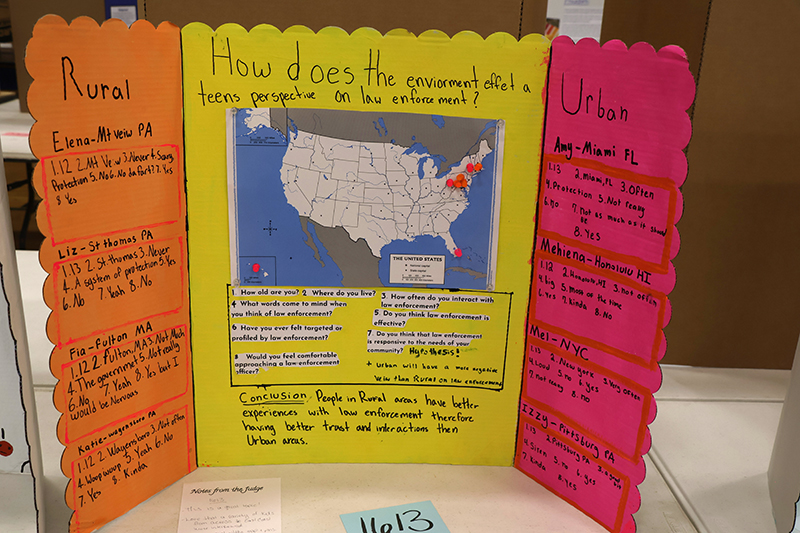 Rural
Elena-Mt veiw PA
1.12 2. Mt Veiw 3. Never 4. Sorg.
Protection 5. No 6. No da fart 7. Yes
8 Yes
Liz-St thomas PA
1.13 2. St-thomas 3. Never
4. A system of protection 5. Yes
6. No 7. Yeah 8. No
Fia-fulton MA
1.12 2. Fulton, MA 3. Not Much
4. The government 5. Not really
6. No 7. Yeah 8. Yes but I
would be Nervous
Katie-
1.12 2. 3. Not often
4. Woop woop 5. Yeah 6. No
7. Yes 8. Kinda
How does the enviorment effet a
teens perspective on law enforcement?
THE UNITED STATES
1 How old are you? 2 Where do you live? 3. How often do you interact with
law enforcement?
4 What words come to mind when
you think of law enforcement?
5. Do you think law enforcement is
effective?
6 Have you ever felt targeted or
profiled by law enforcement?
7. Do you think that law enforcement
is responsive to the needs of your
community?
Hypothesis!
8 Would you feel comfortable
approaching a law enforcement
officer?
+ urban will have a more negative
veiw than Rural on law enforcement
Conclusion: People in Rural areas have better
experiences with law enforcement therefore
having better trust and interactions then
Urban areas.
Urban
Amy-Miami FL
1.13 2. miami, FL 3. Often
4. Protection 5. Not really
6. no 7. Not as much as it should
be
8. Yes
Mehiena-Honolulu HI
1.12 2. Honolulu, HI 3. not often
4. big 5. most of the time
6. yes 7. Kinda 8. No
Mel-NYC
1.13 2. New york 3. Very often
4. Loud 5. no 6. yes
7. not really 8. no
Izzy-Pittsburg PA
1.13 2. Pittsburg PA 3.
4. Siren 5. no 6. yes
7. Kinda 8. yes
Notes from the Judge
1613